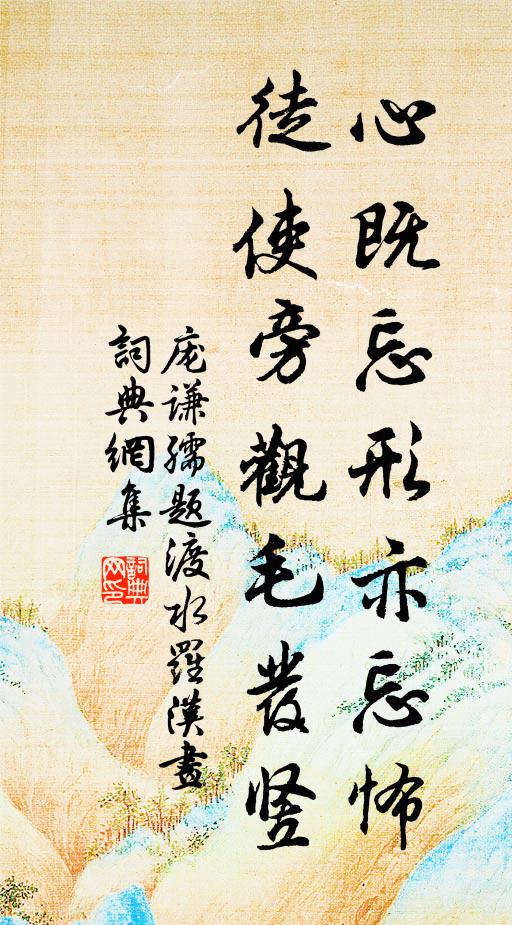 心既忘形亦忘怖
徒使旁觀毛發竖
庞谦孺题渡水羅漢畫
詞典網集
詞典
网印